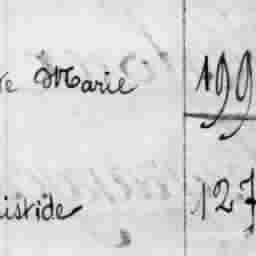 ve Marie 199
istide 127